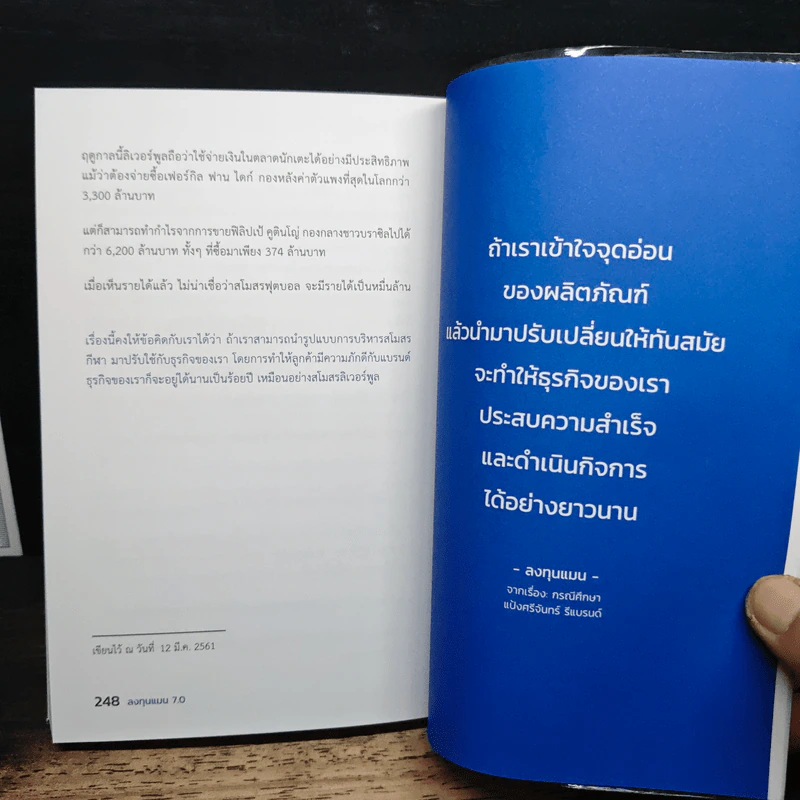 ฤดูกาลนี้ลิเวอร์พูลถือว่าใช้จ่ายเงินในตลาดนักเตะได้อย่างมีประสิทธิภาพ
แม้ว่าต้องจ่ายซื้อเฟอร์กิล ฟาน ไดก์ กองหลังค่าตัวแพงที่สุดในโลกกว่า
3,300 ล้านบาท
แต่ก็สามารถทำกำไรจากการขายฟิลิปเป้ คูตินโญ่ กองกลางชาวบราซิลไปได้
กว่า 6,200 ล้านบาท ทั้งๆ ที่ซื้อมาเพียง 374 ล้านบาท
เมื่อเห็นรายได้แล้ว ไม่น่าเชื่อว่าสโมสรฟุตบอล จะมีรายได้เป็นหมื่นล้าน
เรื่องนี้คงให้ข้อคิดกับเราได้ว่า ถ้าเราสามารถนำรูปแบบการบริหารสโมสร
กีฬา มาปรับใช้กับธุรกิจของเรา โดยการทำให้ลูกค้ามีความภักดีกับแบรนด์
ธุรกิจของเราก็จะอยู่ได้นานเป็นร้อยปี เหมือนอย่างสโมสรลิเวอร์พูล
เขียนไว้ ณ วันที่ 12 มี.ค. 2561
248 ลงทุนแมน 7.0
ถ้าเราเข้าใจจุดอ่อน
ของผลิตภัณฑ์
แล้วนำมาปรับเปลี่ยนให้ทันสมัย
จะทำให้ธุรกิจของเรา
ประสบความสำเร็จ
และดำเนินกิจการ
ได้อย่างยาวนาน
- ลงทุนแมน -
จากเรื่อง: กรณีศึกษา
แป้งศรีจันทร์ รีแบรนด์